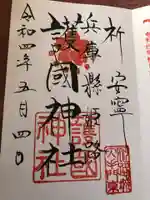 祈 安寧
兵庫縣姫路
護國神社
令和四年五月四日
護國
神社